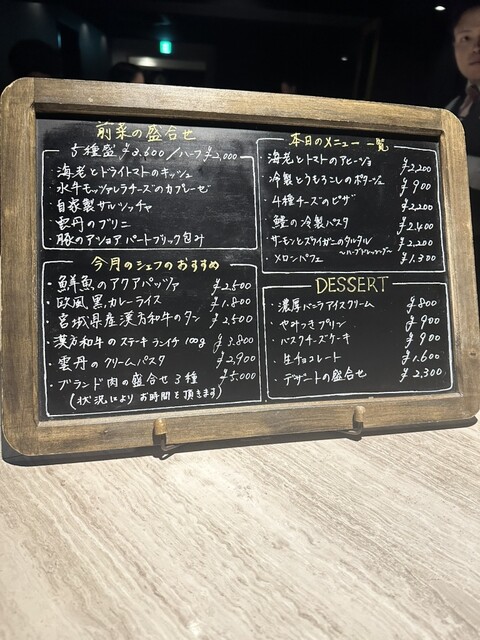 前菜の盛合せ
5種盛 ¥3,600 / ハーフ ¥2,000
海老とドライトマトのキッシュ
水牛モッツァレラチーズのカプレーゼ
自家製サルシッチャ
雲丹のブリニ
豚のアッショア パートブリック包み
今月のシェフのおすすめ
・鮮魚のアクアパッツァ ¥2,500
・欧風黒カレーライス ¥1,800
・宮城県産漢方和牛のタン ¥2,500
・漢方和牛のステーキ ランイチ 100g ¥3,800
・雲丹のクリームパスタ ¥2,900
・ブランド肉の盛合せ 3種 ¥5,000
(状況により お時間を頂きます)
本日のメニュー 一覧
・海老とトマトのアヒージョ ¥2,200
・冷製とうもろこしのポタージュ ¥900
・4種チーズのピザ ¥2,200
・鱧の冷製パスタ ¥2,400
・サーモンとズワイガニのタルタル ¥2,200
〜ハーブドレッシング〜
・メロンパフェ ¥1,300
DESSERT
・濃厚バニラアイスクリーム ¥800
・やみつきプリン ¥900
・バスクチーズケーキ ¥900
・生チョコレート ¥1,600
・デザートの盛合せ ¥2,300